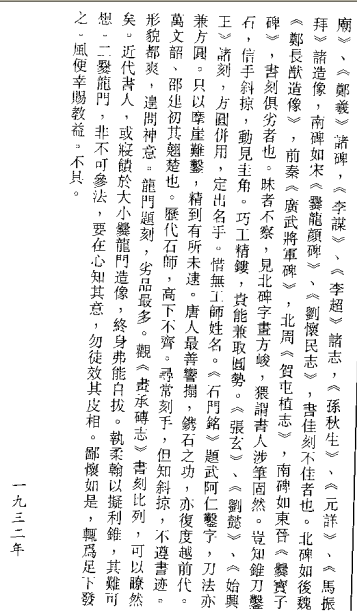 廟》、《鄭羲》諸碑，《李謀》、《李超》諸志，《孫秋生》、《元詳》、《馬振
拜》諸造像，南碑如宋《爨龍顔碑》、《劉懷民志》，書佳刻不佳者也。北碑如後魏
《鄭長猷造像》，前秦《廣武將軍碑》，北周《賀屯植志》，南碑如東晉《爨寶子
碑》，書刻俱劣者也。昧者不察，見北碑字畫方峻，猥謂書人涉筆固然。豈知錐刀鑿
石，信手斜掠，動見圭角。巧工精鏤，貴能兼取圓勢。《張玄》、《劉懿》、《始興
王》諸刻，方圓併用，定出名手。惜無工師姓名。《石門銘》題武阿仁鑿字，刀法亦
兼方圓。只以摩崖難鑿，精到有所未逮。唐人最善響搨，鐫石之功，亦復度越前代。
萬文韶、邵建初其翹楚也。歷代石師，高下不齊。尋常刻手，但知斜掠，不遵書迹。
形貌都爽，遑問神意。龍門題刻，劣品最多。觀《畫承磚志》書刻比列，可以瞭然
矣。近代書人，或寢饋於大小爨龍門造像，終身弗能自拔。執柔翰以擬利錐，其難可
想。二爨龍門，非不可參法，要在心知其意，勿徒效其皮相。鄙懷如是，輒爲足下發
之。風便幸賜教益。不具。
一九三二年